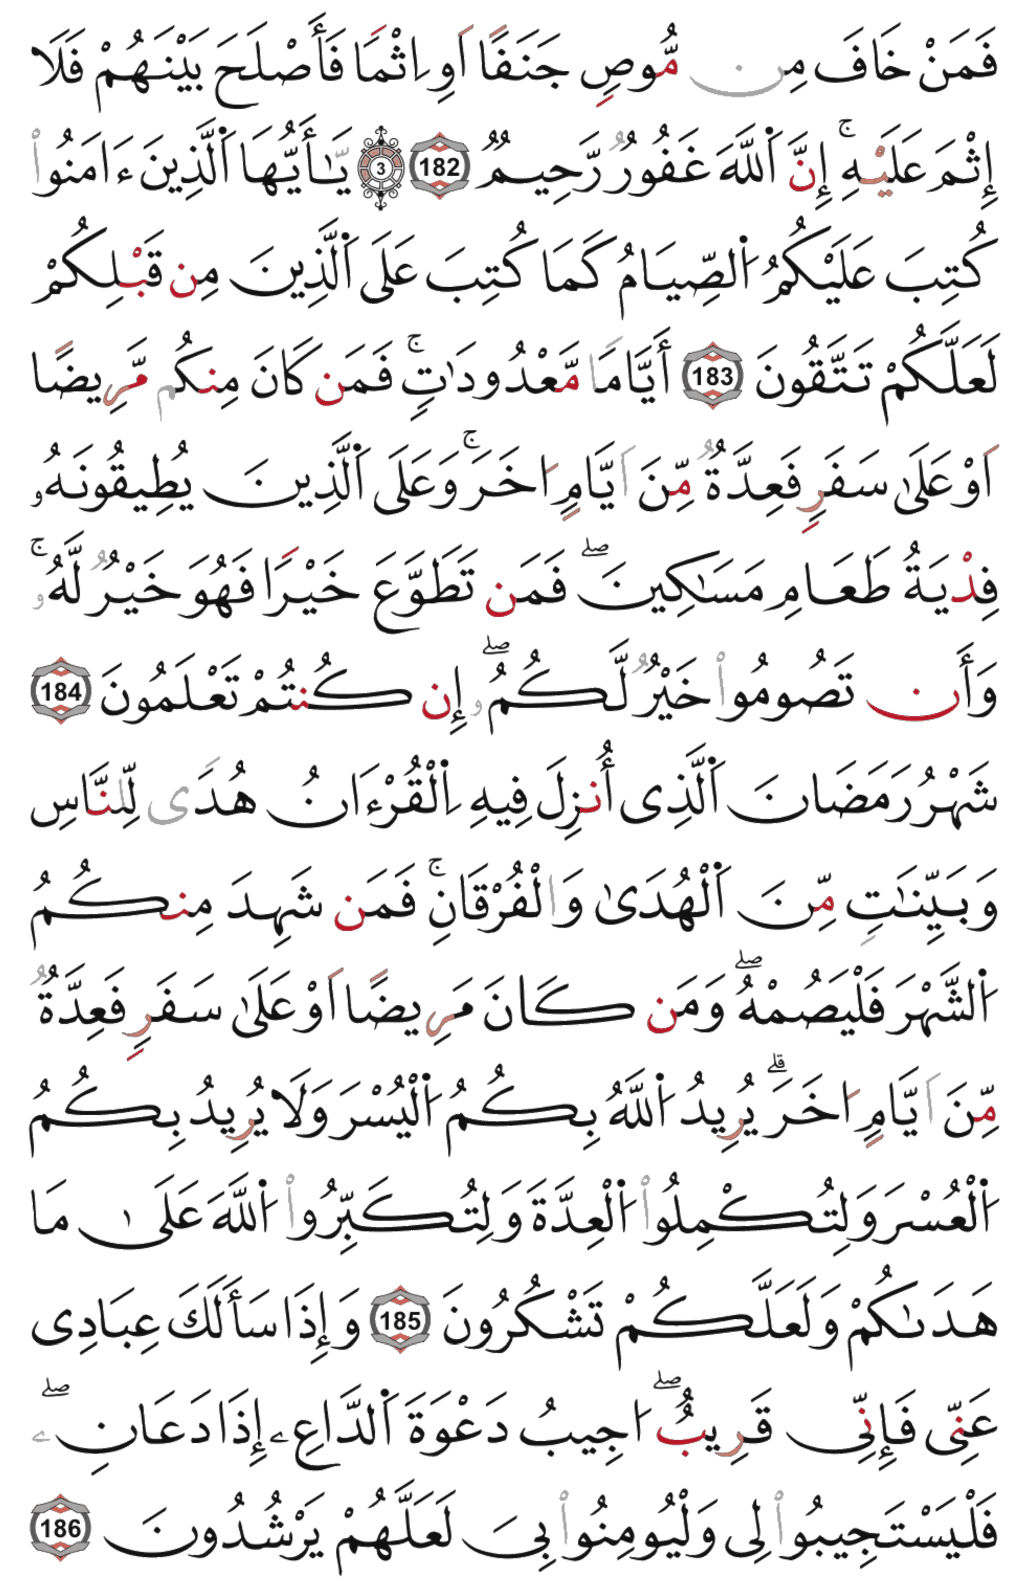 فَمَنْ خَافَ مِن مُّوصٍ جَنَفًا اَوِ اِثْمًا فَأَصْلَحَ بَيْنَهُمْ فَلَا
إِثْمَ عَلَيْهِ ۚ إِنَّ اَ۬للَّهَ غَفُورٌ رَّحِيمٌ 182 3 يَٰٓأَيُّهَا اَ۬لَّذِينَ ءَامَنُواْ
كُتِبَ عَلَيْكُمُ اُ۬لصِّيَامُ كَمَا كُتِبَ عَلَى اَ۬لَّذِينَ مِن قَبْلِكُمْ
لَعَلَّكُمْ تَتَّقُونَ 183 أَيَّامًا مَّعْدُودَٰتٍ ۚ فَمَن كَانَ مِنكُم مَّرِيضًا
اَوْ عَلَىٰ سَفَرٍ فَعِدَّةٌ مِّنَ اَيَّامٍ اُخَرَ ۚ وَعَلَى اَ۬لَّذِينَ يُطِيقُونَهُۥ
فِدْيَةُ طَعَامِ مَسَٰكِينَ ۖ فَمَن تَطَوَّعَ خَيْرًا فَهُوَ خَيْرٌ لَّهُۥ ۚ
وَأَن تَصُومُواْ خَيْرٌ لَّكُمُۥ ۖ إِن كُنتُمْ تَعْلَمُونَ 184
شَهْرُ رَمَضَانَ اَ۬لَّذِى أُنزِلَ فِيهِ اِ۬لْقُرْءَانُ هُدًى لِّلنَّاسِ
وَبَيِّنَٰتٍ مِّنَ اَ۬لْهُدَىٰ وَالْفُرْقَانِ ۚ فَمَن شَهِدَ مِنكُمُ
اُ۬لشَّهْرَ فَلْيَصُمْهُ ۖ وَمَن كَانَ مَرِيضًا اَوْ عَلَىٰ سَفَرٍ فَعِدَّةٌ
مِّنَ اَيَّامٍ اُخَرَ ۗ يُرِيدُ اُ۬للَّهُ بِكُمُ اُ۬لْيُسْرَ وَلَا يُرِيدُ بِكُمُ
اُ۬لْعُسْرَ وَلِتُكْمِلُواْ اُ۬لْعِدَّةَ وَلِتُكَبِّرُواْ اُ۬للَّهَ عَلَىٰ مَا
هَدَىٰكُمْ وَلَعَلَّكُمْ تَشْكُرُونَ 185 وَإِذَا سَأَلَكَ عِبَادِى
عَنِّى فَإِنِّى قَرِيبٌ ۖ اُجِيبُ دَعْوَةَ اَ۬لدَّاعِۦ إِذَا دَعَانِۦ ۖ
فَلْيَسْتَجِيبُواْ لِى وَلْيُومِنُواْ بِىَ لَعَلَّهُمْ يَرْشُدُونَ 186